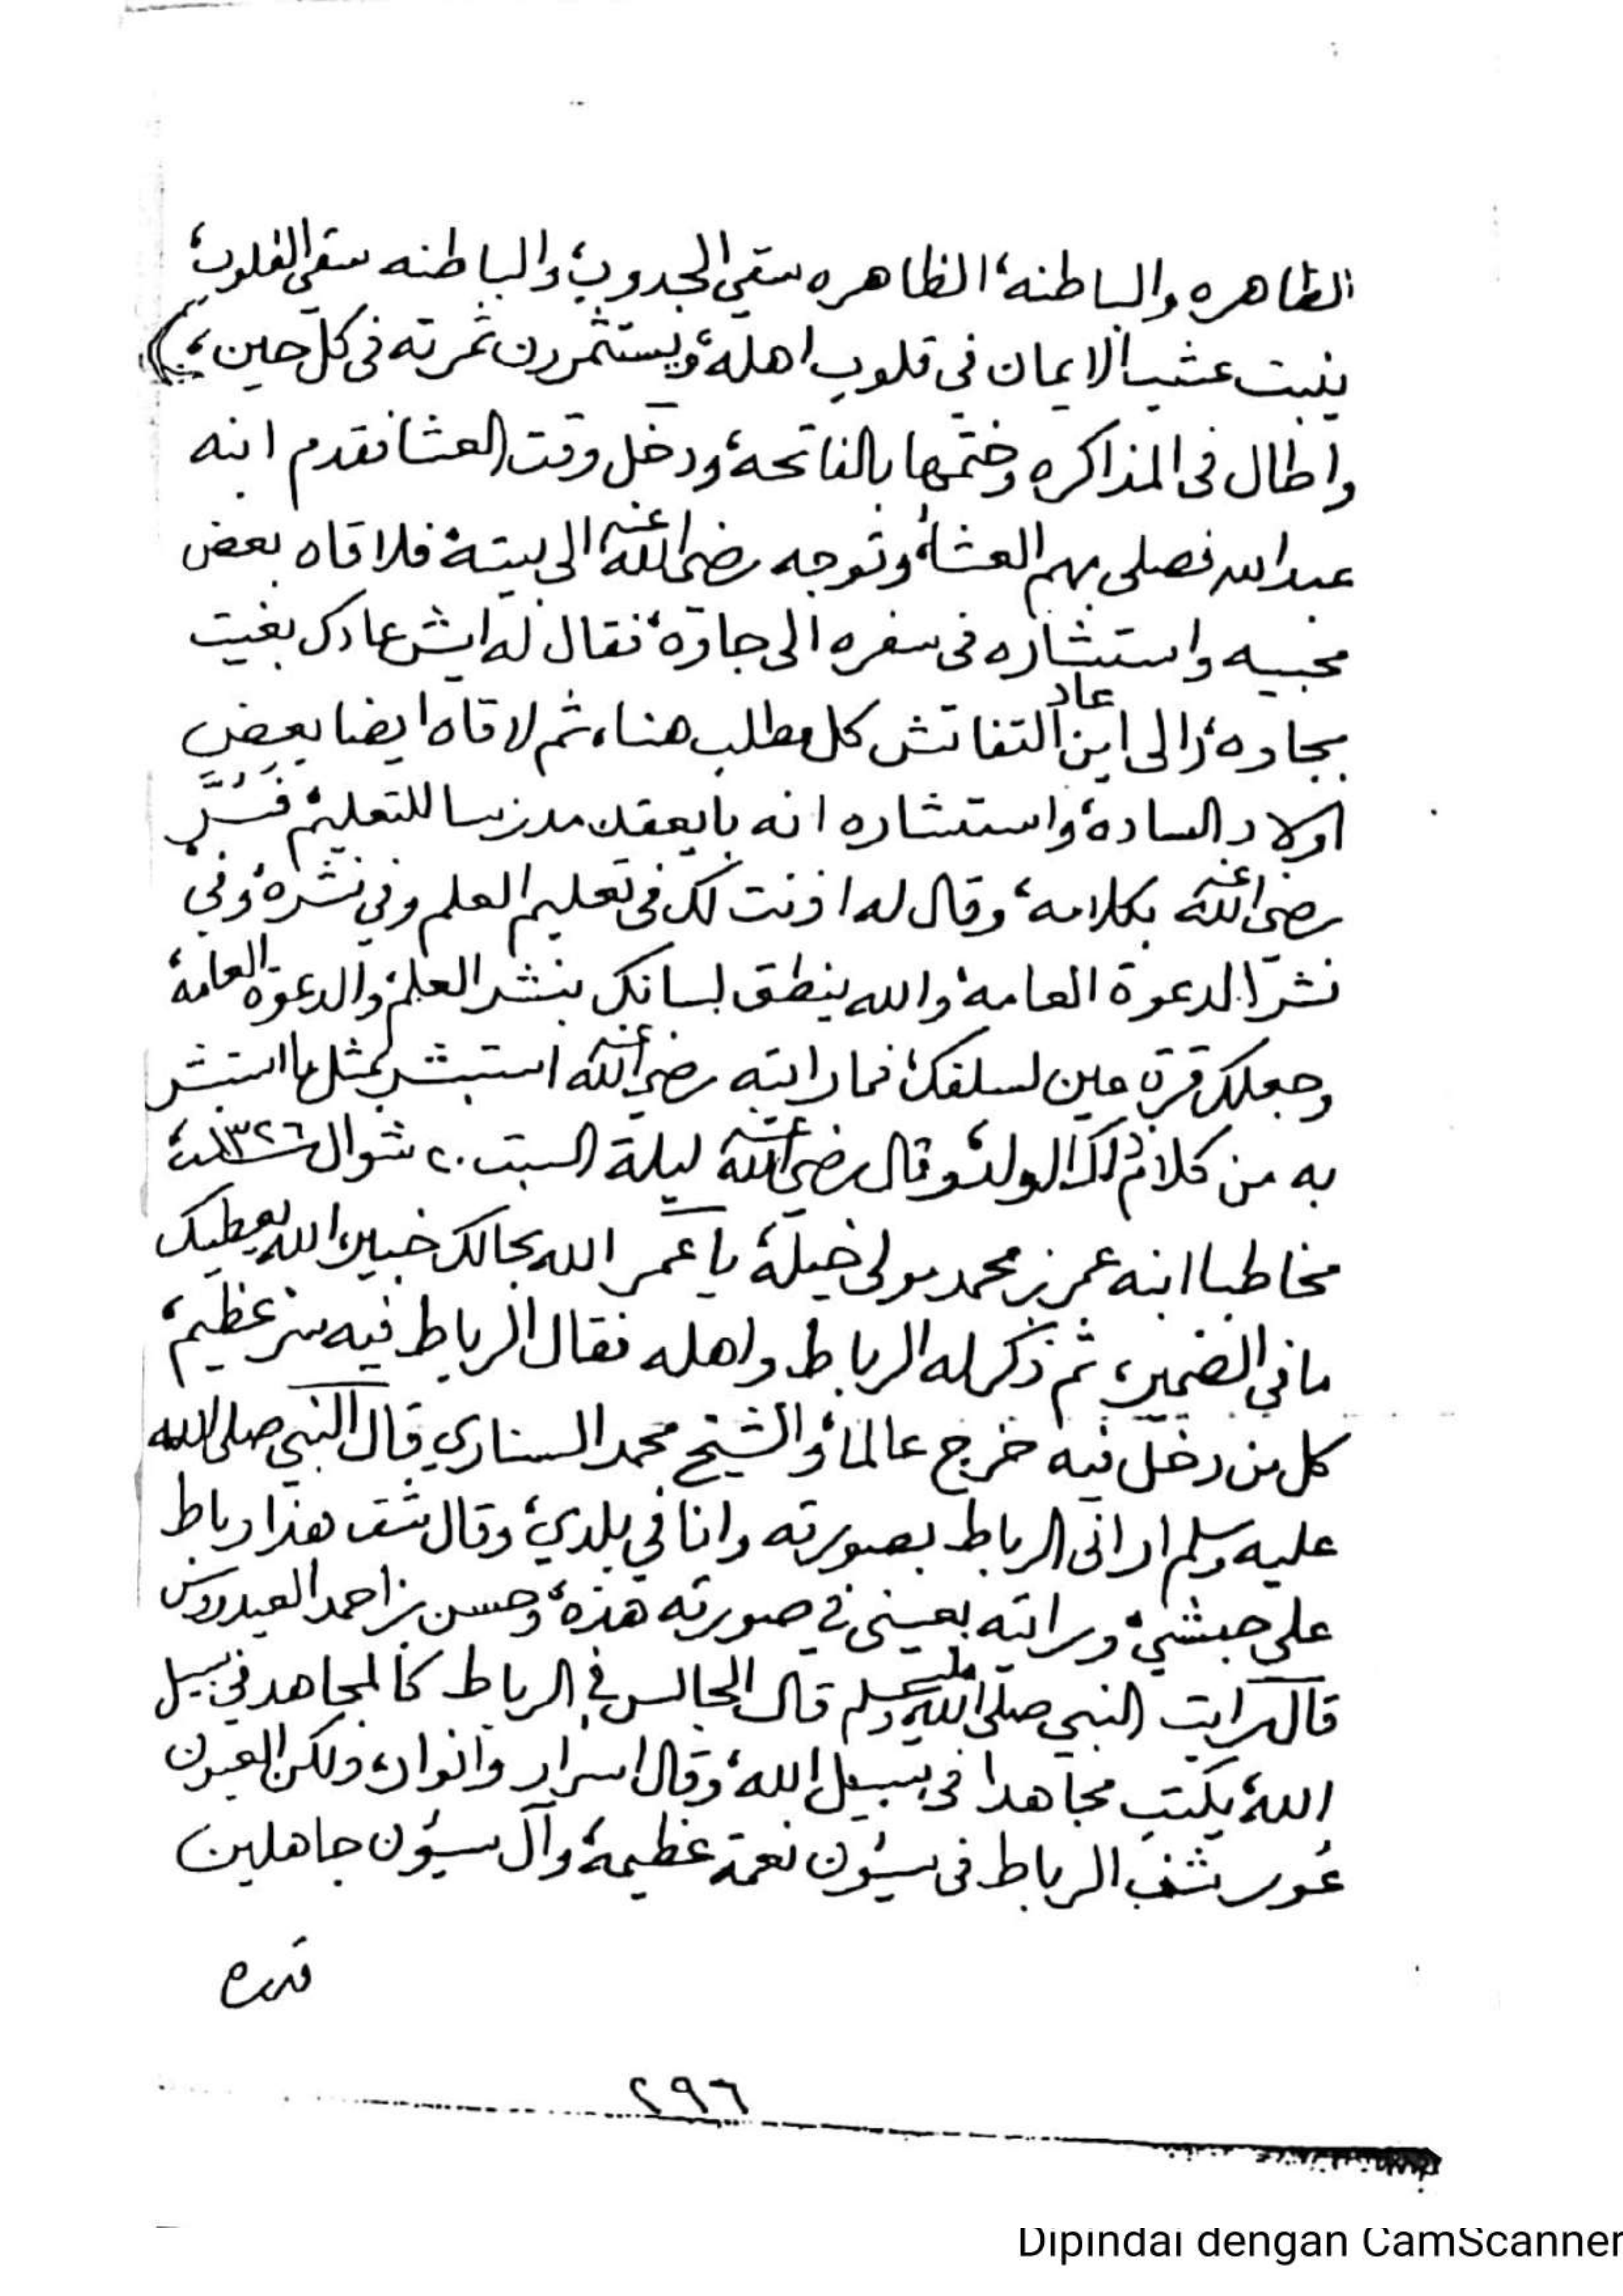 الظاهره والباطنه، الظاهره سقي الجدوب، والباطنه سقي القلوب،
ينبت عشب الايمان في قلوب اهله، ويستثمرون ثمرته في كل حين، )
واطال في المذاكره وختمها بالفاتحه، ودخل وقت العشا فقدم ابنه
عبدالله فصلى بهم العشاء، وتوجه رضي الله عنه الى بيته فلاقاه بعض
محبيه واستشاره في سفره الى جاوة، فقال له ايش عادك بغيت
بجاوه، الى اين عاد التفاتش كل مطلب هنا، ثم لاقاه ايضا بعض
اولاد الساده، واستشاره انه بايعقد مدرسا للتعليم، فَسُرَّ
رضي الله عنه بكلامه، وقال له اذنت لك في تعليم العلم وفي نشره، وفي
نشر الدعوة العامه، والله ينطق لسانك بنشر العلم، والدعوة العامة،
وجعلك قرة عين لسلفك، فما رايته رضي الله عنه استبشر بمثل ما استبشر
به من كلام ذاك الولد، وقال رضي الله عنه ليلة السبت ٢٠ شوال ١٣٢٦سنة،
مخاطبا ابنه عمر بن محمد مولى خيلة، يا عمر الله بحالك خبير، الله يعطيك
ما في الضمير، ثم ذكر له الرباط واهله فقال الرباط فيه سر عظيم،
كل من دخل فيه خرج عالما، والشيخ محمد السناري قال النبي صلى الله
عليه وسلم اراني الرباط بصورته وانا في بلدي، وقال شف هذا رباط
علي حبشي، ورايته بعيني في صورته هذه، وحسن بن احمد العيدروس
قال رايت النبي صلى الله عليه وسلم قال الجالس في الرباط كالمجاهد في سبيل
الله، يكتب مجاهدا في سبيل الله، وقال اسرار وانوار، ولكن العيون
عُور شف الرباط في سيؤن نعمة عظيمة، وآل سيؤن جاهلين
قدره
٢٩٦
Dipindai dengan CamScanner